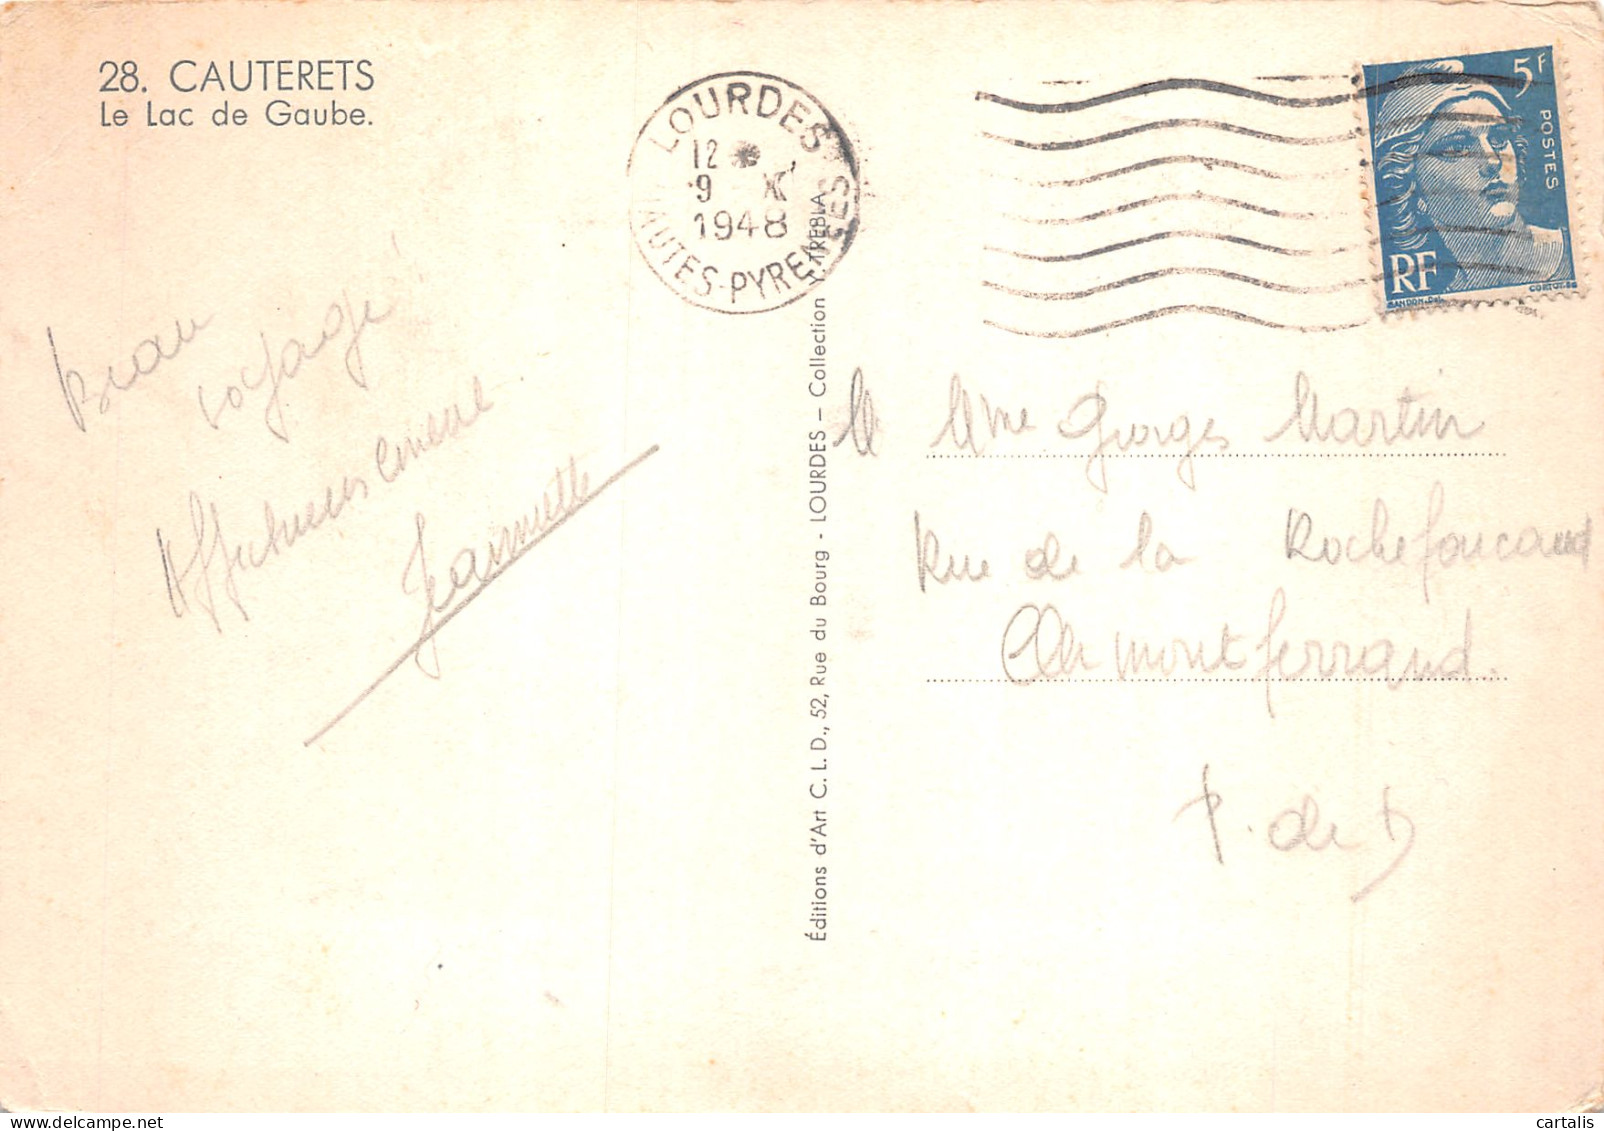 28. CAUTERETS
Le Lac de Gaube.
LOURDES
12 *
9 X
1948
HAUTES-PYRENEES
5F
POSTES
RF
GANDON.DEL
CORTOT.SC
Beau
voyage!!
Affectueusement
Jeannette
Éditions d'Art C. L. D., 52, Rue du Bourg - LOURDES – Collection YXREBLA
M Mme Georges Martin
Rue de la Rochefoucaud
Clermontferrand.
P. de D
cartalis